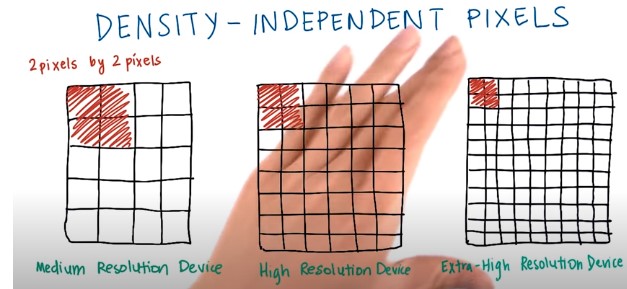 DENSITY-INDEPENDENT PIXELS
2pixels by 2 pixels
Medium Resolution Device
High Resolution Device
Extra-High Resolution Device